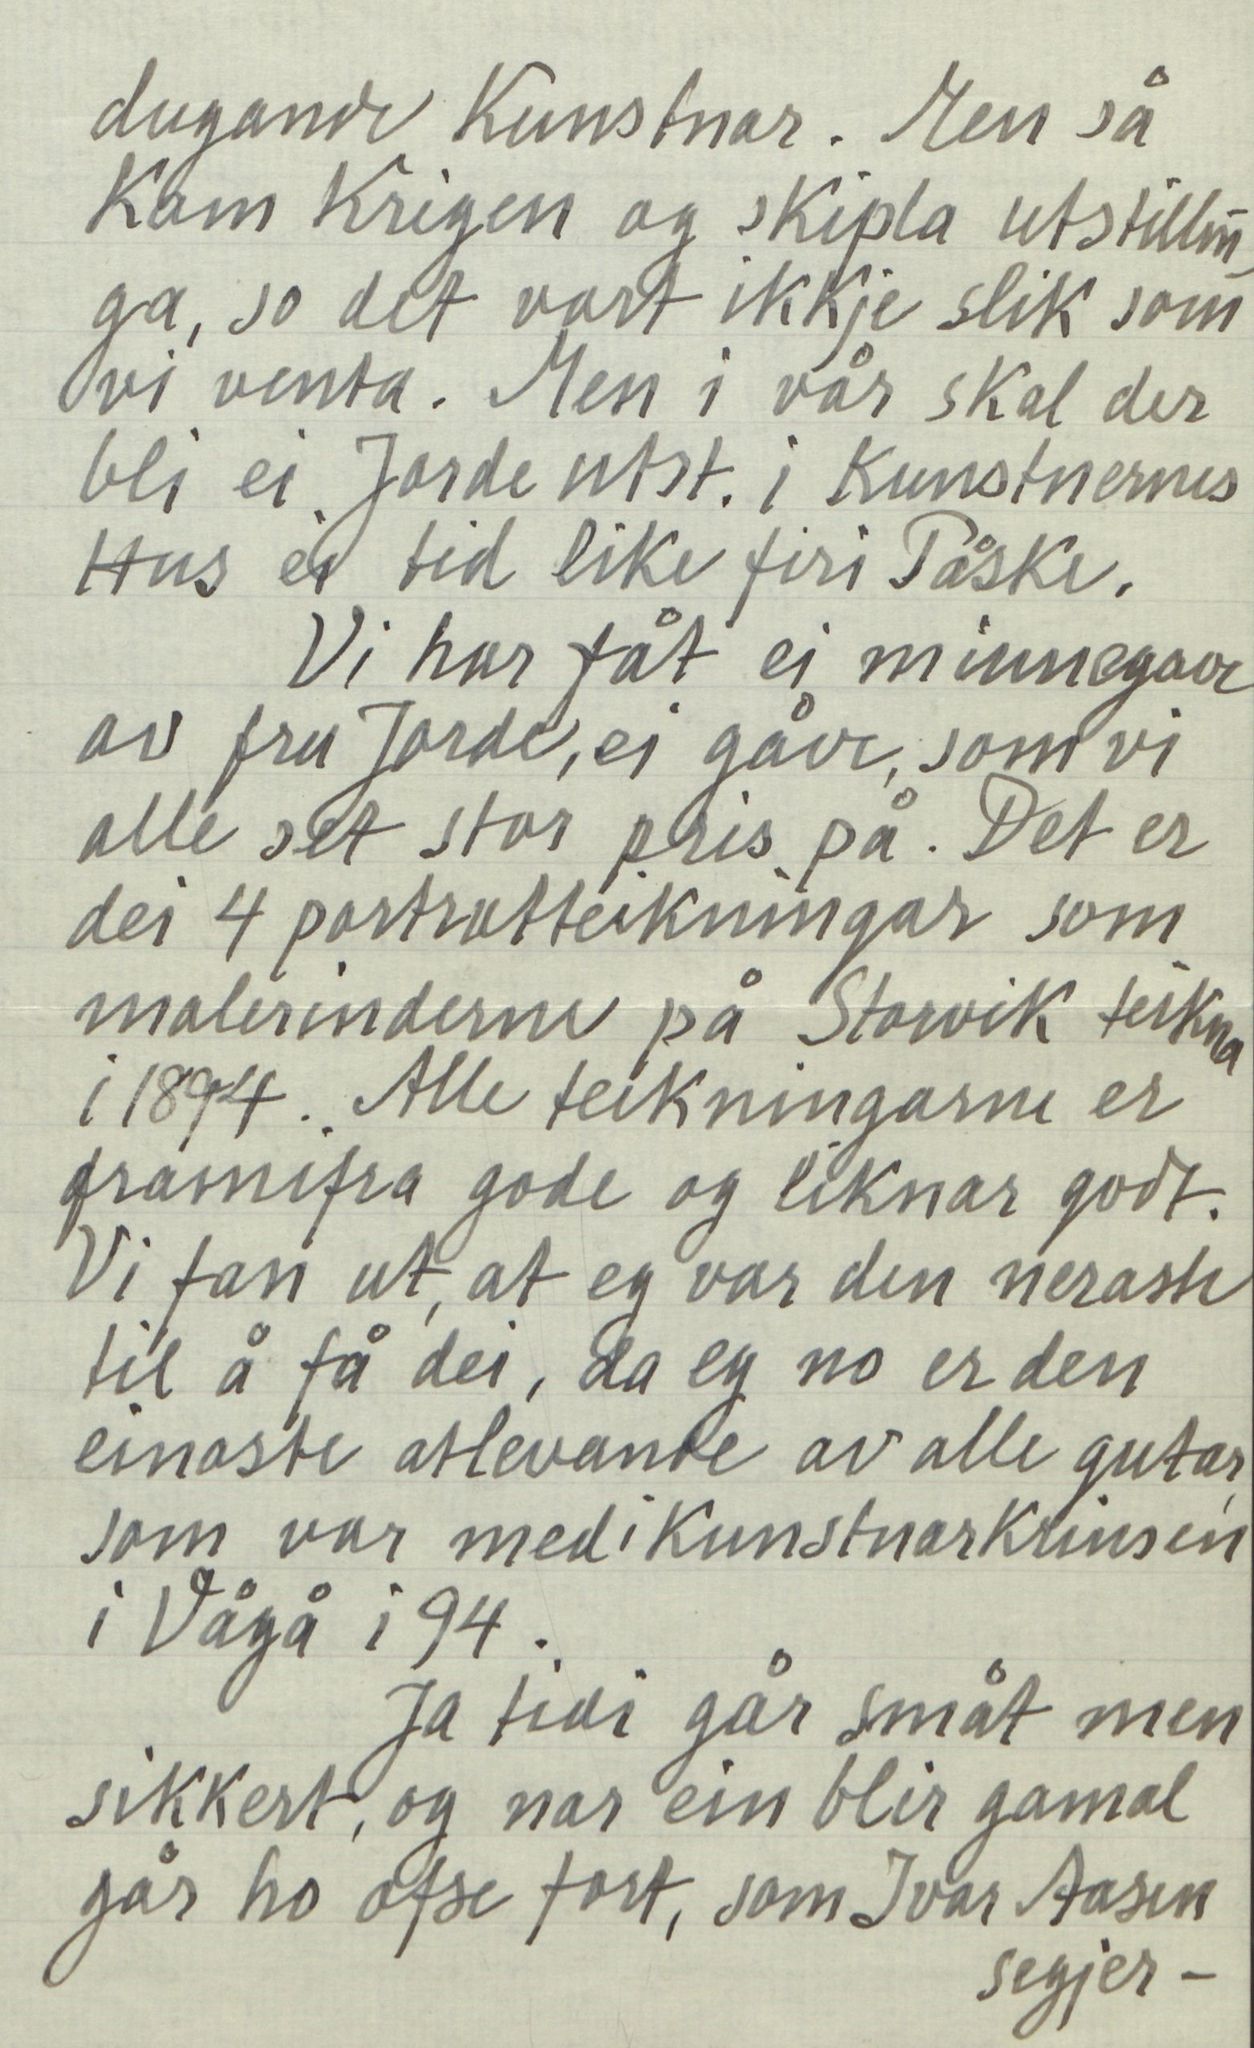 dugande Kunstnar. Men så
Kom Krigen og skipla utstillin-
ga, so det vart ikkje slik som
vi venta. Men i vår skal der
bli ei Jorde utst. i Kunstnernes
Hus ei tid like firi Påske.
Vi har fåt ei minnegave
av fru Jorde, ei gåve, som vi
alle set stor pris på. Det er
dei 4 portrætteikningar som
malerinderne på Storvik teikna
i 1894. Alle teikningarne er
framifra gode og liknar godt.
Vi fan ut, at eg var den neraste
til å få dei, da eg no er den
einaste atlevande av alle gutar,
som var med i Kunstnarkrinsen
i Vågå i 94.
Ja tidi går småt men
sikkert, og nar ein blir gamal
går ho ofse fort, som Ivar Aasen
segjer -